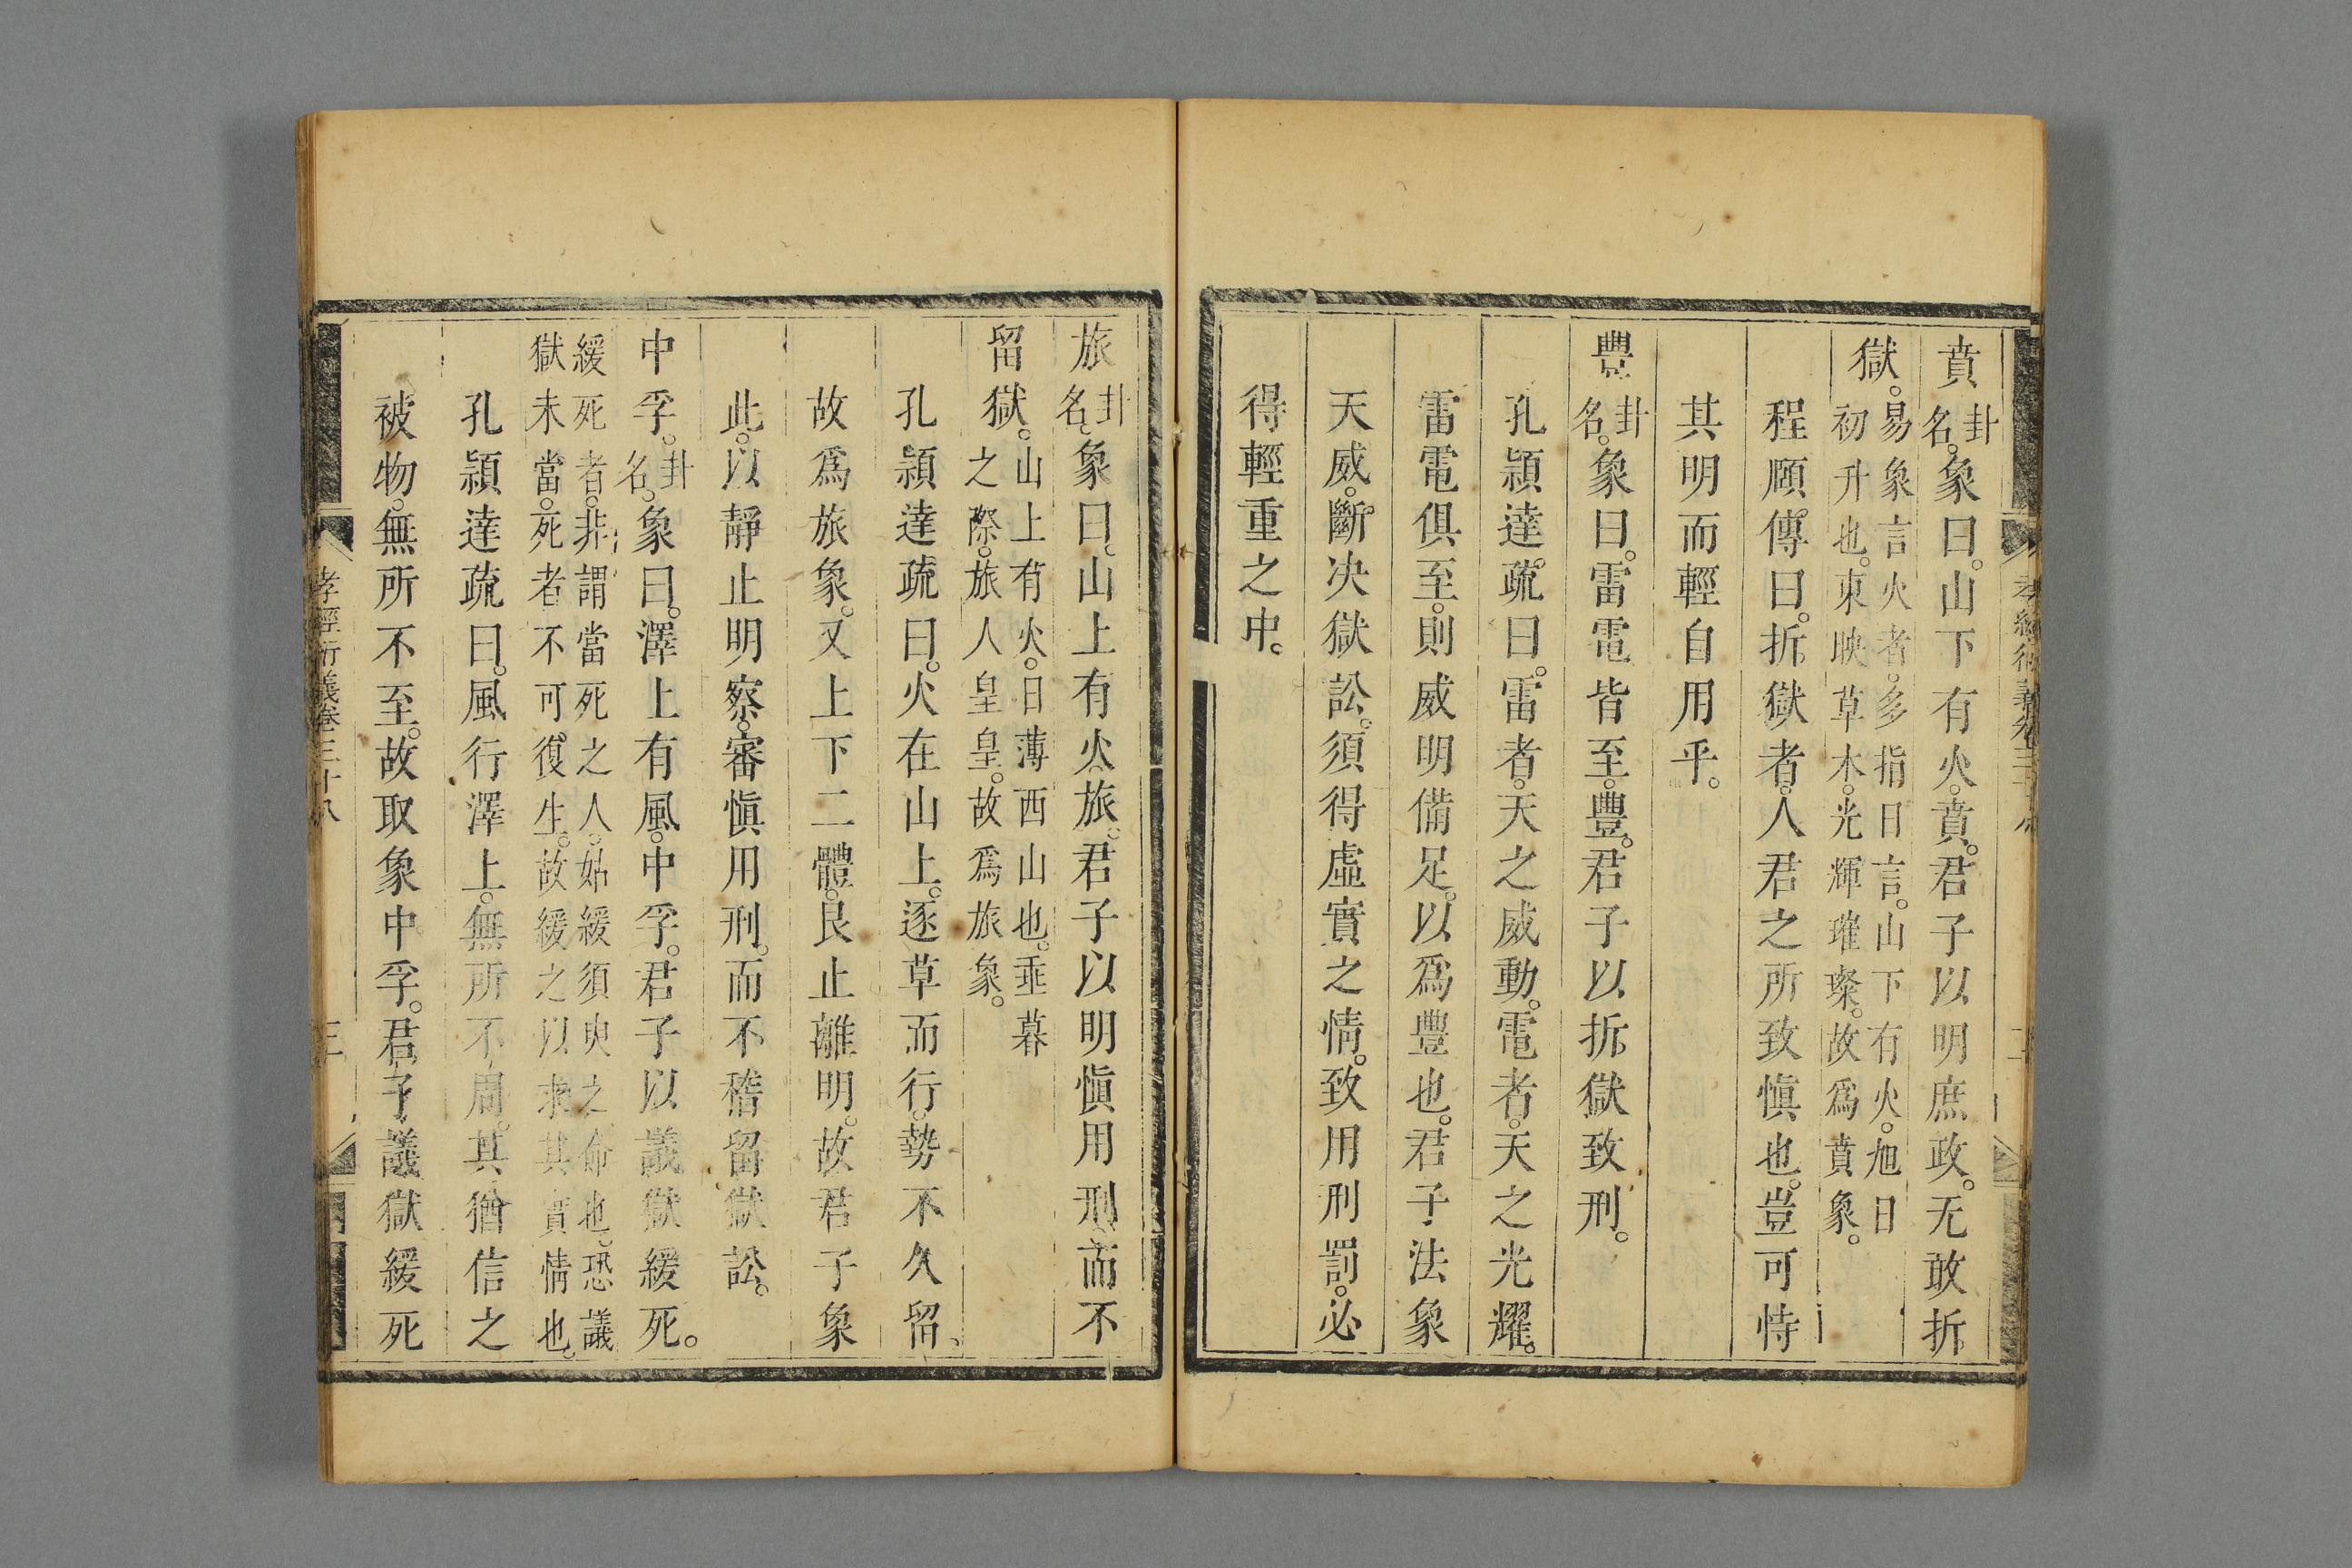 孝經衍義卷三十八
二
賁卦名。象曰。山下有火。賁。君子以明庶政。无敢折
獄。易象言火者。多指日言。山下有火。旭日
初升也。東映草木。光輝璀璨。故爲賁象。
程頤傳曰。折獄者。人君之所致慎也。豈可恃
其明而輕自用乎。
豐卦名。象曰。雷電皆至。豐。君子以折獄致刑。
孔穎達疏曰。雷者。天之威動。電者。天之光耀。
雷電俱至。則威明備足。以爲豐也。君子法象
天威。斷决獄訟。須得虛實之情。致用刑罰。必
得輕重之中。
旅卦名。象曰。山上有火。旅。君子以明慎用刑。而不
留獄。山上有火。日薄西山也。垂暮
之際。旅人皇皇。故爲旅象。
孔穎達疏曰。火在山上。逐草而行。勢不久留。
故爲旅象。又上下二體。艮止離明。故君子象
此。以靜止明察。審慎用刑。而不稽留獄訟。
中孚。卦名。象曰。澤上有風。中孚。君子以議獄緩死。
緩死者。非謂當死之人。姑緩須臾之命也。恐議
獄未當。死者不可復生。故緩之以求其實情也。
孔穎達疏曰。風行澤上。無所不周。其猶信之
被物。無所不至。故取象中孚。君子議獄緩死
孝經衍義卷三十八
三